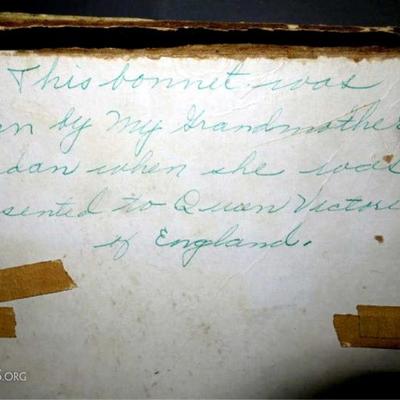 This bonnet was
n by My Grandmother
dan when she was
sented to Queen Victori
of England.
.ORG